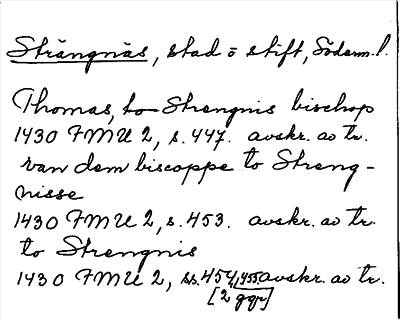 Strängnäs, stad o stift, Söderm.l.
Thomas, to Strengnis bischop
1430 FMU 2, s. 447. avskr. av tr.
van dem biscoppe to Streng-
nisse
1430 FMU 2, s. 453. avskr. av tr.
to Strengnis
1430 FMU 2, ss. 454, 455 avskr. av tr.
[2 ggr]